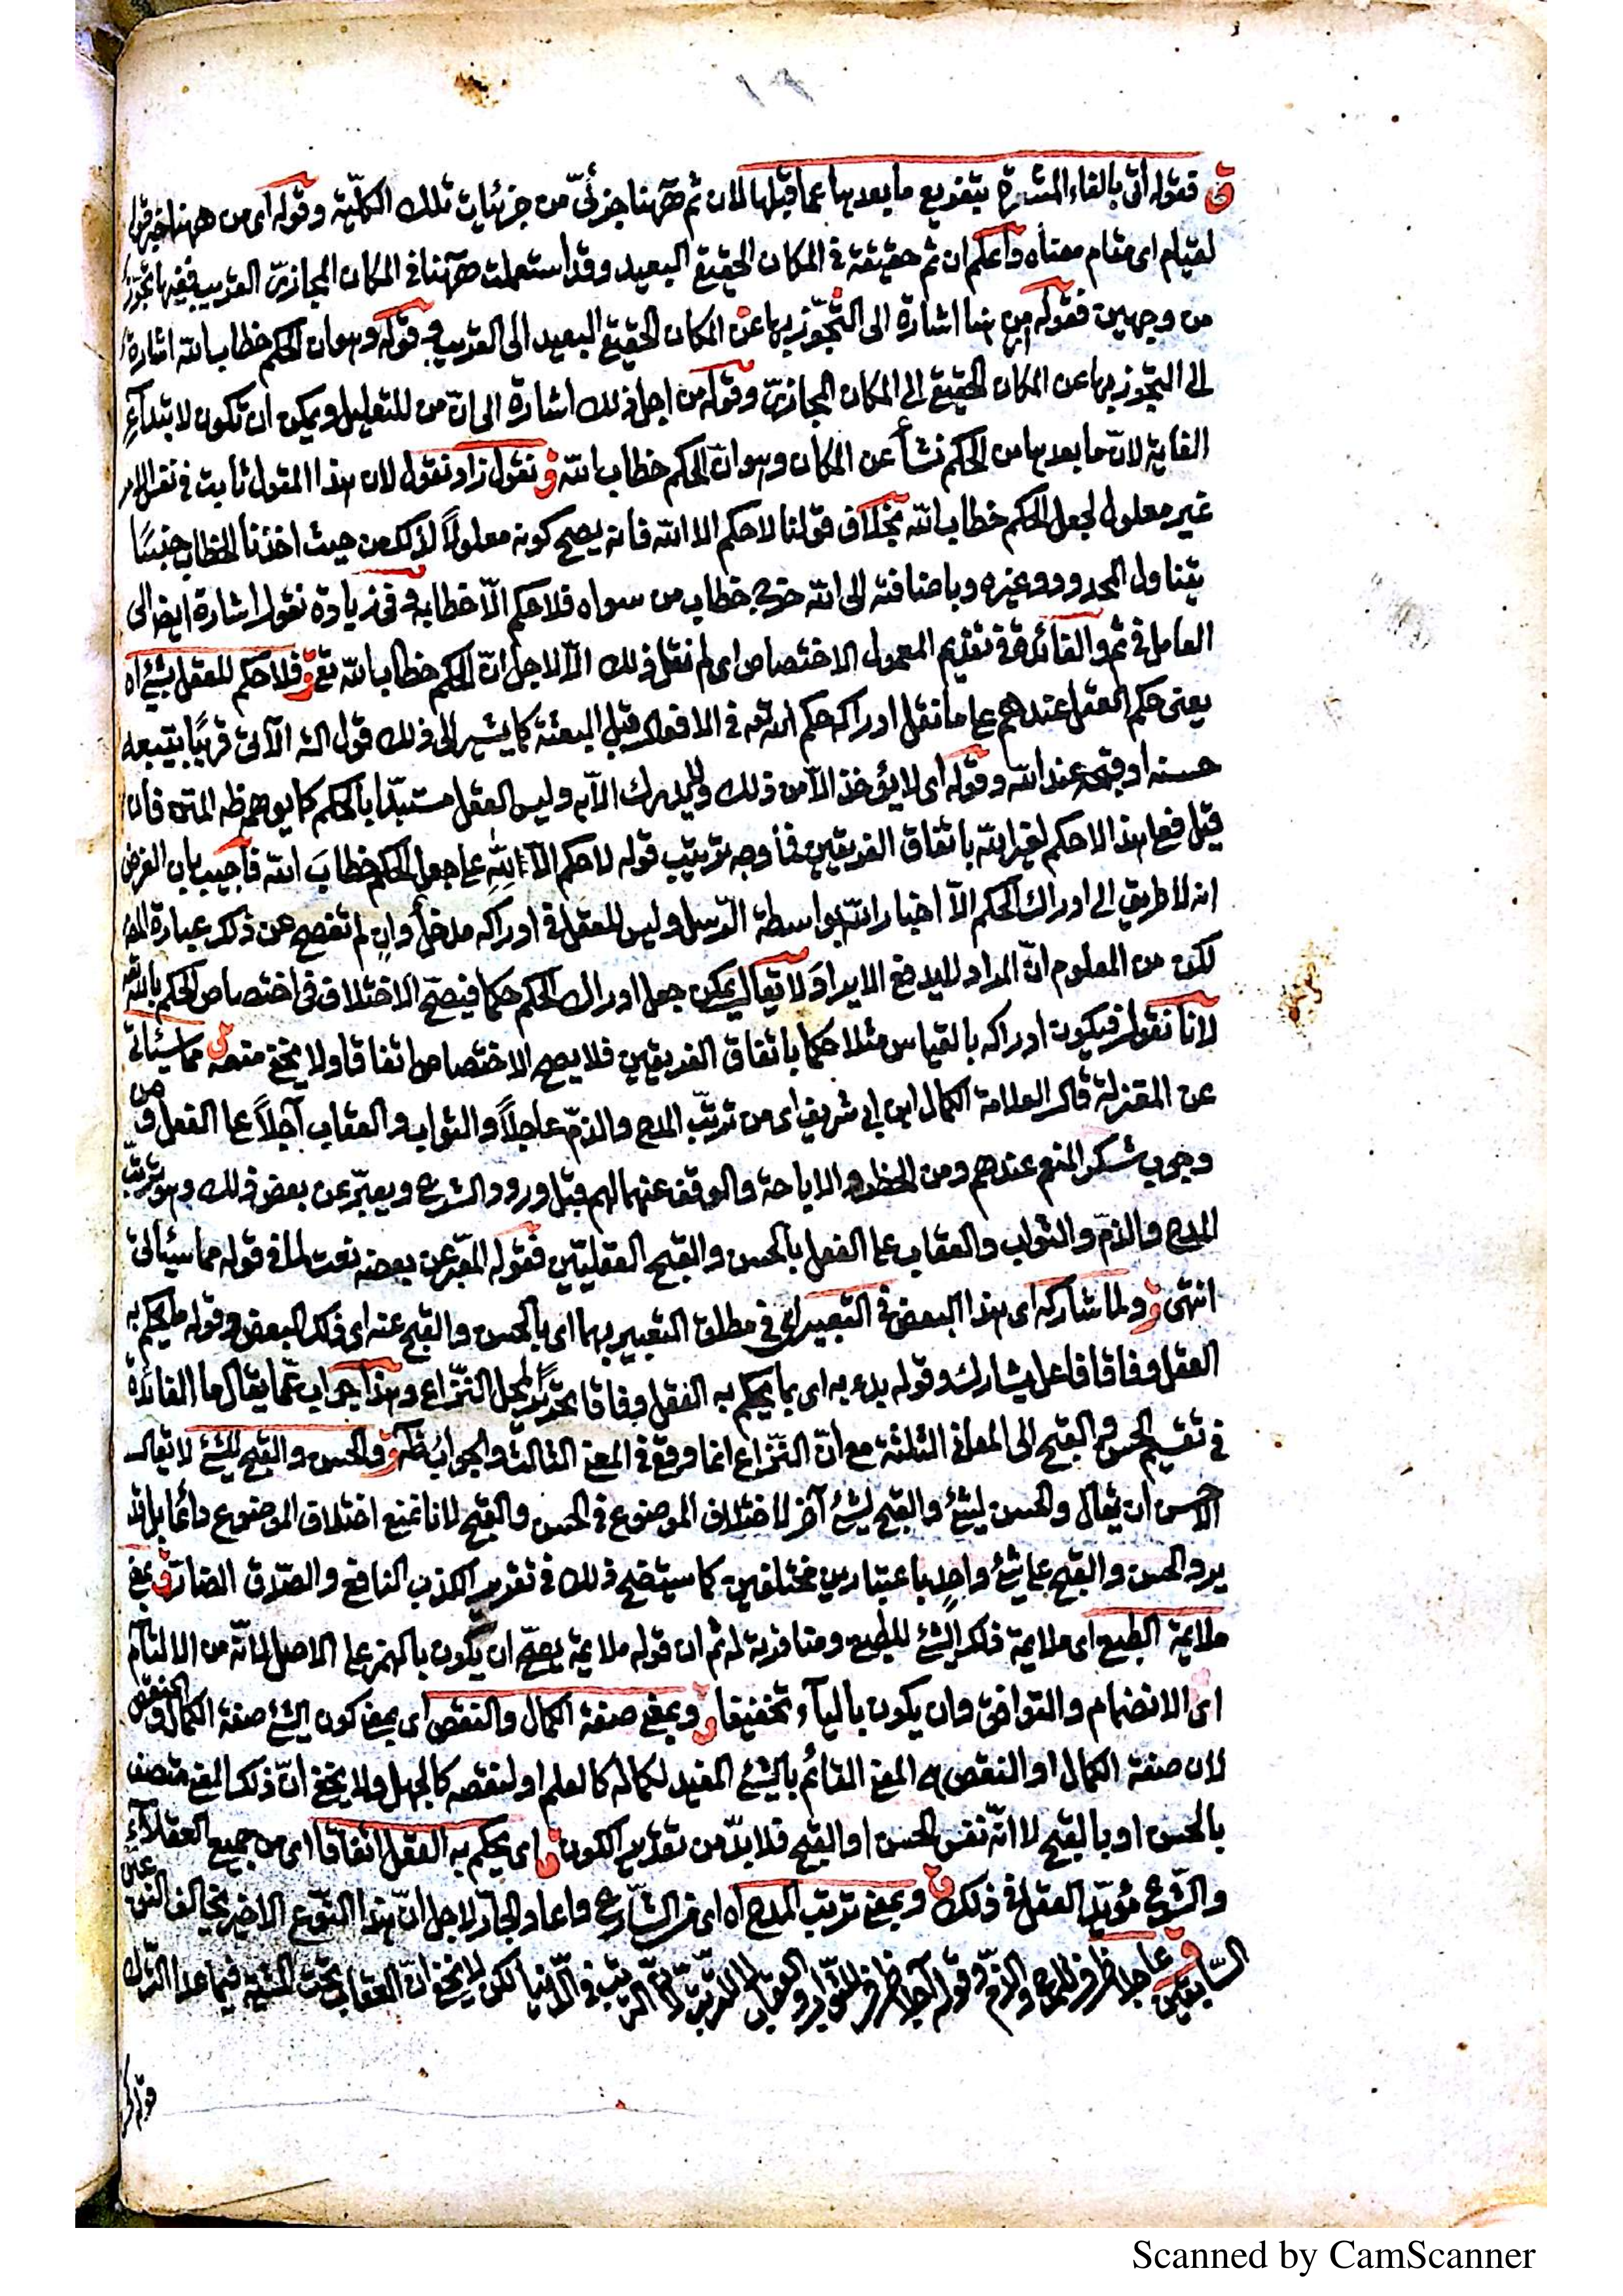 ق فقوله اتى بالفاء المشعرة بتفريع ما بعدها عما قبلها لان ثم ههنا جزئىّ من جزئيات تلك الكلّية وقوله اى من ههنا
اى مقام معناه واعلم ان ثم حقيقة فى المكان الحقيقى البعيد وقد استعملت ههنا فى المكان المجازىّ القريب ففيها تجوّز
من وجهين فقوله من هنا اشارة الى التجّوز بها عن المكان الحقيقى البعيد الى القريب وقوله وهو ان الحكم خطاب الله اشارة
الى التجوز بها عن المكان الحقيقى الى المكان المجازىّ وقوله من اجل ذلك اشارة الى انّ من للتعليل ويمكن ان تكون لابتداء
الغاية لانّ ما بعدها من الحكم نشأ عن المكان وهو انّ الحكم خطاب الله ق نقول زاد نقول لان هذا المقول ثابت فى نفس الامر
غير معلول لجعل الحكم خطاب الله بخلاف قولنا لا حكم الا الله فانه يصح كونه معلولاً لذلك من حيث اخذنا الخطاب جنسًا
يتناول المحدود وغيره وباضافته الى الله خرج خطاب من سواه فلا حكم الّا خطابه وفى زيادة نقول اشارة ايضا الى
العامل فى ثم والفائدة فى تقديم المعمول الاختصاص اى لم نقل ذلك الّا لاجل انّ الحكم خطاب الله تع ق فلا حكم للعقل بشئ اه
يعنى حكم العقل عندهم على ما نقل ادراكه حكم الله تعه فى الافعال قبل البعثة كما يشير الى ذلك قول الشه الآتى قريبًا بتبعه
حسنه او قبحه عند الله وقوله اى لا يؤخذ الّا من ذلك ولا يدرك الّا به وليس العقل مستبدّا بالحكم كما يوهمه ظه المتن فان
قيل فعلى هذا لا حكم لغير الله باتفاق الفريقين فما وجه ترتيب قوله لا حكم الّا لله على جعل الحكم خطابَ الله فاجيب بان الغرض
انه لا طريق الى ادراك الحكم الّا اخبار الله بواسطة الرّسل وليس للعقل فى ادراكه مدخل وان لم تفصح عن ذلك عبارة المص
لكن من المعلوم انّ المراد لا يدفع الايراد ولا يقال يمكن جعل ادراك الحكم حكما فيصحّ الاختلاف فى اختصاص الحكم بالله تعه
لانا نقول فيكون ادراكه بالقياس مثلا حكما باتفاق الفريقين فلا يصح الاختصاص اتفاقا ولا يخفى منعه ق مما سيئاتى
عن المعتزلة قال العلامة الكمال ابن ابى شريف اى من ترتّب المدح والذمّ عاجلاً والثواب والعقاب آجلاً على الفعل ومن
وجوب شكر المنعم عندهم ومن الحظر والاباحة والوقف عنهما لهم قبل ورود الشرع ويعبّر عن بعض ذلك وهو ترتّب
المدح والذمّ والثواب والعقاب على الفعل بالحسن والقبح العقليّين فقوله المعّبر عن بعضه نعت لما فى قوله مما سيئاتى
انتهى ق ولما شاركه اى هذا البعض فى التعبير اى فى مطلق التعبير بهما اى بالحسن والقبح عنه اى ذلك البعض وقوله ما يحكم به
العقل وفاقا فاعل يشارك وقوله بدء به اى بما يحكم به العقل وفاقا تحريرًا لمحل النّزاع وهذا جواب عمّا يقال ما الفائدة
فى تقسيم الحسن والقبح الى المعانى الثلثة مع انّ النّزاع انما وقع فى المعنى الثالث والجواب ظه ق والحسن والقبح للشئ لا يقال
الاحسن ان يقال والحسن لشئ والقبح لشئ آخر لاختلاف الموضوع فى الحسن والقبح لانا نمنع اختلاف الموضوع دائما بل قد
يرد الحسن والقبح على شئ واحد باعتبارين مختلفين كما سيتضح ذلك فى تقرير الكذب النافع والصّدق الضارّ ق بمعنى
ملايمة الطبع اى ملايمة ذلك الشئ للطبع ومنافرته له ثم ان قوله ملايمة يصحّ ان يكون بالهمز على الاصل لانّه من الالتئام
اى الانضمام والتوافق وان يكون باليآء تخفيفا ق وبمعنى صفة الكمال والنقص اى بمعنى كون الشئ صفة الكمال والنقص
لان صفة الكمال او النقص هى المعنى القائم بالشئ المفيد لكماله كالعلم او لنقصه كالجهل ولا يخفى انّ ذلك المعنى متصف
بالحسن او بالقبح لا انّه نفس الحسن او القبح فلا بدّ من تقدير الكون ق اى يحكم به العقل اتفاقا اى من جميع العقلآء
والشّرع مؤيّد للعقل فى ذلك ق وبمعنى ترتب المدح اه اى فى الشّرع واعاد الجارّ لاجل انّ هذا النّوع الاخير يخالف النوعين
السّابقين ق عاجلا ظرف للمدح والذمّ وقوله آجلا ظرف للثواب والعقاب لا للترتّب لانّ الترتيب فى الدّنيا لكن لا يخفى انّ العقاب تحت المشيّة فيما عدا الشرك